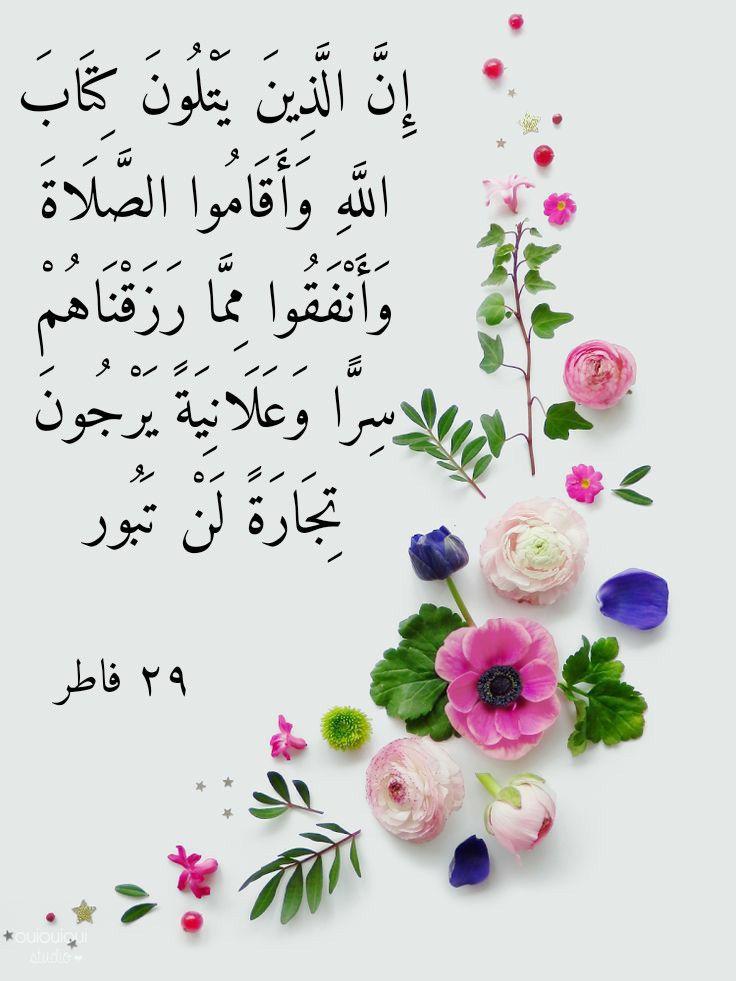 إِنَّ الَّذِينَ يَتْلُونَ كِتَابَ
اللَّهِ وَأَقَامُوا الصَّلَاةَ
وَأَنْفَقُوا مِمَّا رَزَقْنَاهُمْ
سِرًّا وَعَلَانِيَةً يَرْجُونَ
تِجَارَةً لَنْ تَبُور
٢٩ فاطر
ouiouioui
studio